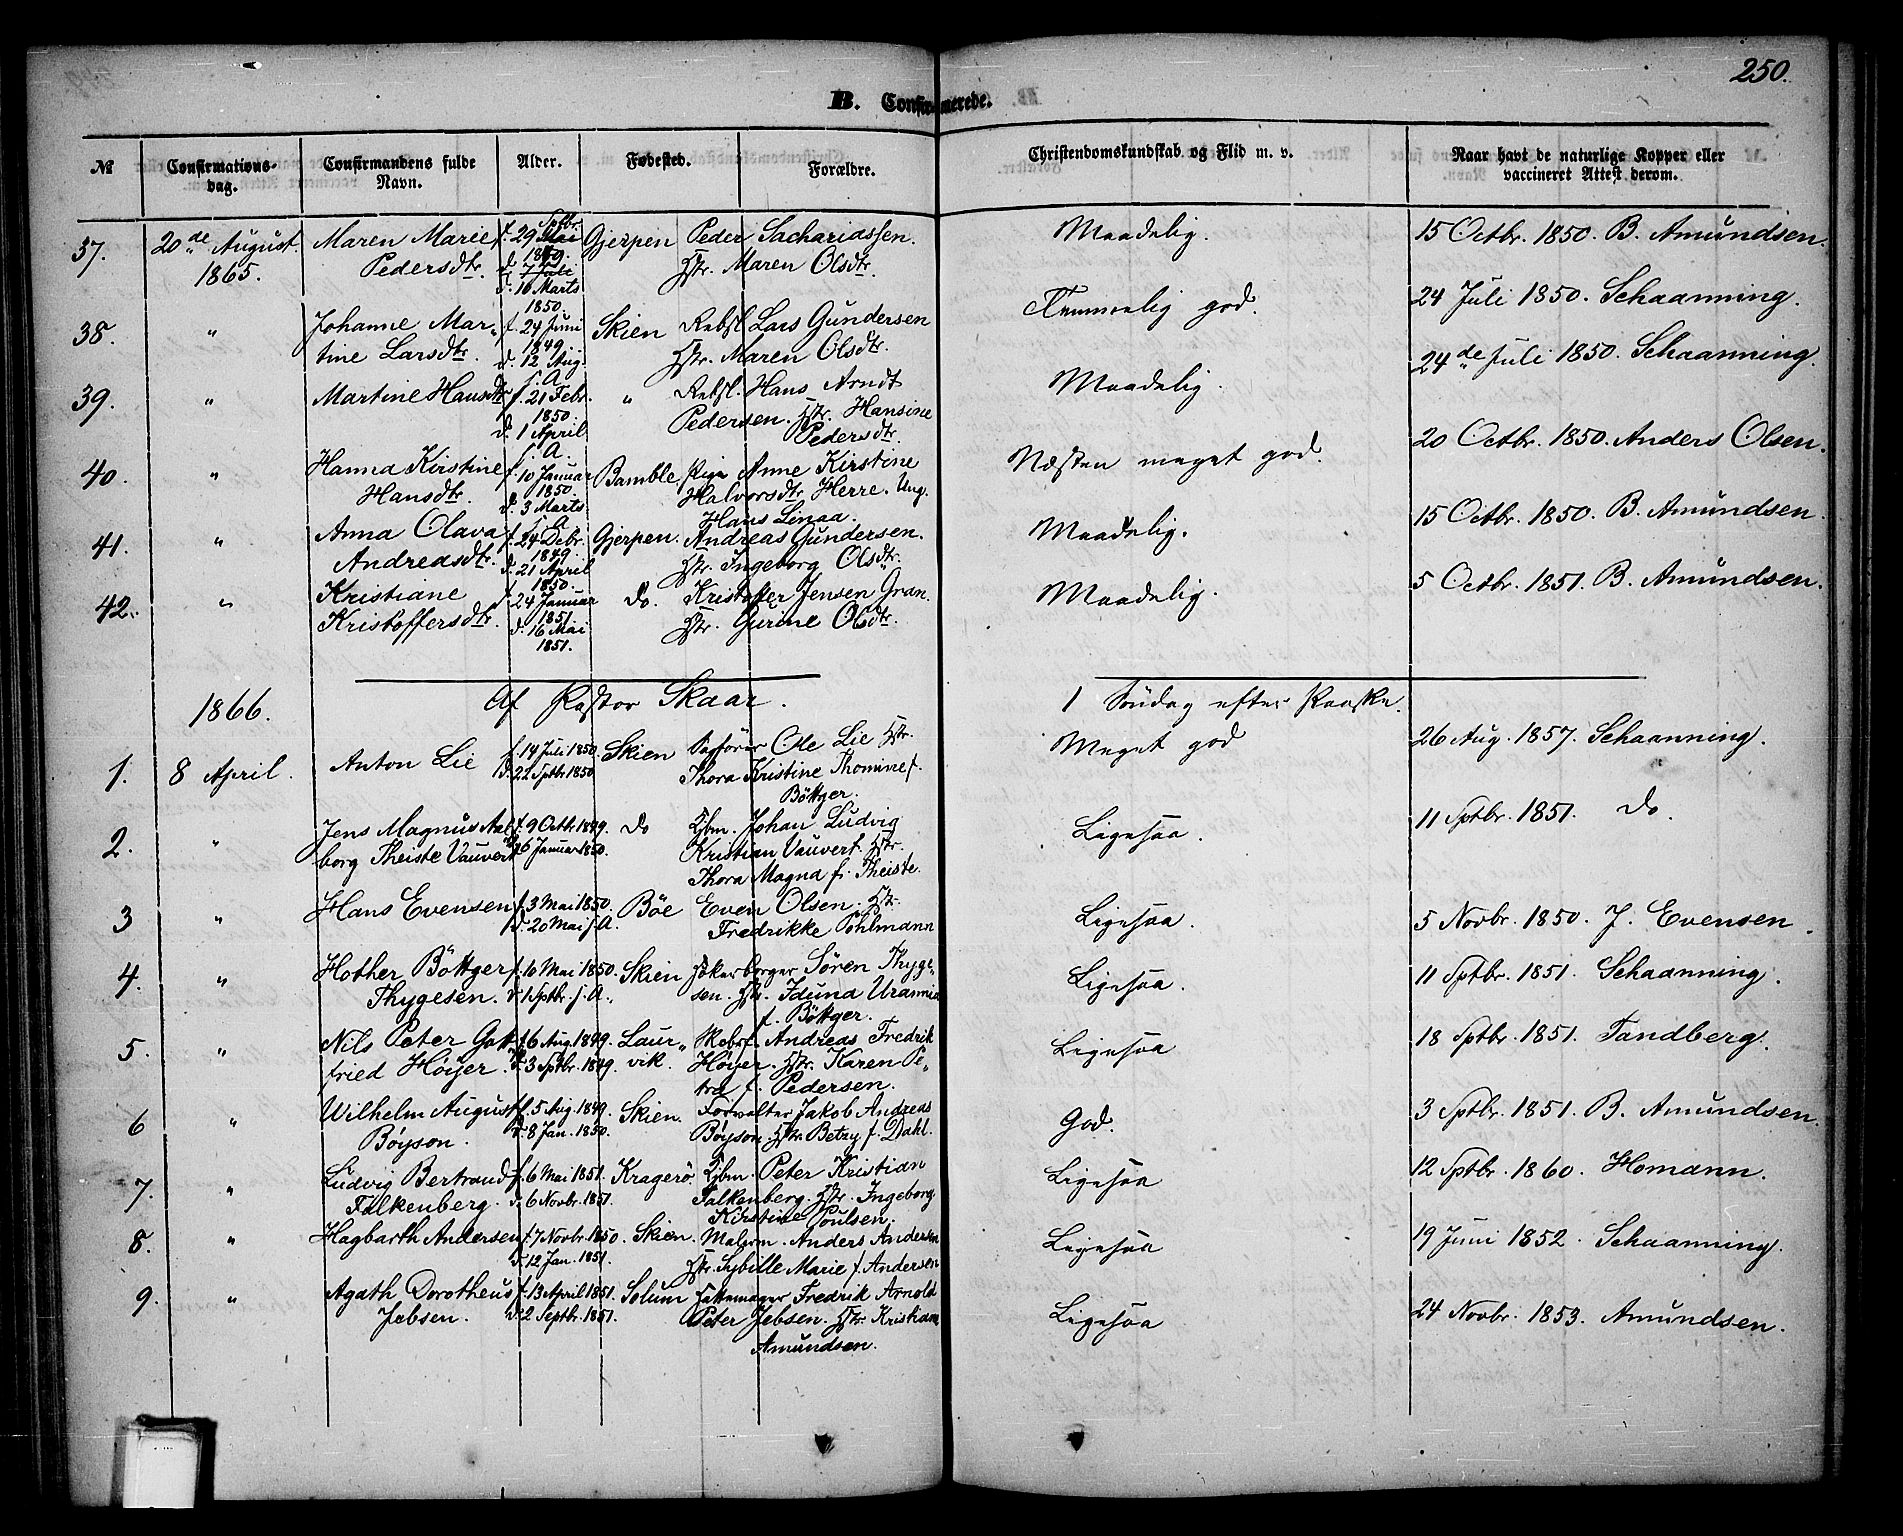 250.
B. Confirmerede.
№ Confirmations-dag. Confirmandens fulde Navn. Alder. Fødested. Forældre. Christendomskundskab og Flid m. v. Naar havt de naturlige Kopper eller vaccineret Attest derom.
37. 20de August 1865. Maren Marie Pedersdtr. f. 29 Mai Sptbr. 1849. d. 7 Juli d. 10 Marts 1850. Gjerpen Peder Sachariassen. Hstr. Maren Olsdtr. Maadelig. 15 Octbr. 1850. B. Amundsen.
38. " Johanne Martine Larsdtr. f. 24 Juni 1849. d. 12 Aug. s. A. Skien Rebsl. Lars Gundersen Hstr. Maren Olsdtr. Temmelig god. 24 Juli 1850. Schaanning.
39. " Martine Hansdtr. f. 21 Febr. 1850. d. 1 April s. A. " Rebsl. Hans Arndt Pedersen. Hstr. Hansine Pedersdtr. Maadelig. 24de Juli 1850. Schaanning.
40. " Hanna Kirstine Hansdtr. f. 10 Januar 1850. d. 3 Marts s. A. Bamble Pige Anne Kirstine Halvorsdtr. Herre. Ung. Hans Linaa. Næsten meget god. 20 Octbr. 1850. Anders Olsen.
41. " Anna Olava Andreasdtr. f. 24 Debr. 1849. d. 21 April 1850. Gjerpen. Andreas Gundersen. Hstr. Ingeborg Olsdtr. Maadelig. 15 Octbr. 1850. B. Amundsen.
42. " Kristiane Kristoffersdtr. f. 24 Januar 1851. d. 16 Mai 1851. Do. Kristoffer Jensen Gran. Hstr. Gurine Olsdtr. Maadelig. 5 Octbr. 1851. B. Amundsen.
1866. Af Pastor Skaar. 1 Söndag efter Paaske.
1. 8 April. Anton Lie f. 14 Juli 1850. d. 22 Sptbr 1850 Skien Sagförer Ole Lie Hstr. Thora Kristine Thomine f. Böttger. Meget god 26 Aug. 1857. Schaanning.
2. " Jens Magnus Aalborg Theiste Vauvert f. 9 Octbr. 1849. d. 26 Januar 1850. Do Kjbm. Johan Ludvig Kristian Vauvert. Hstr. Thora Magna f. Theiste. Ligesaa. 11 Sptbr. 1851. Do.
3 " Hans Evensen f. 3 Mai 1850. d. 20 Mai s. A. Böe Even Olsen. Hstr. Fredrikke Pöhlmann Ligesaa. 5 Novbr. 1850. J. Evensen.
4. " Hother Böttger Thygesen. f. 10 Mai 1850. d. 1 Sptbr. s. A. Skien Sören Thygesen. Hstr. Iduna Urannia f. Böttger. Ligesaa. 11 Sptbr. 1851. Schaanning.
5. " Nils Peter Gottfried Höijer. f. 6 Aug. 1849. d. 3 Sptbr. 1849. Laurvik. Skobsf. Andreas Fredrik Höijer. Hstr. Karen Petrea f. Pedersen. Ligesaa 18 Sptbr. 1851. Tandberg.
6 " Wilhelm August Böyson. f. 5 Aug. 1849. d. 8 Jan. 1850. Skien. Forvalter Jakob Andreas Böyson. Hstr. Betzy f. Dahl. God. 3 Sptbr. 1851. B. Amundsen.
7. " Ludvig Bertrand Falkenberg. f. 6 Mai 1851. d. 6 Novbr. 1851. Kragerö Kjbm. Peter Kristian Falkenberg. Hstr. Ingeborg Kirstine Poulsen. Ligesaa 12 Sptbr. 1860. Homann.
8. " Hagbarth Andersen f. 7 Novbr. 1850. d. 12 Jan. 1851. Skien. Malerm. Anders Andersen Hstr. Sybille Marie f. Andersen Ligesaa 19 Juni 1852. Schaanning.
9. " Agath Dorotheus Jebsen. f. 13 April 1851. d. 2 Septbr. 1851. Solum Hattemager Fredrik Arnold Peter Jebsen. Hstr. Kristiane Amundsen. Ligesaa 24 Novbr. 1853. Amundsen.